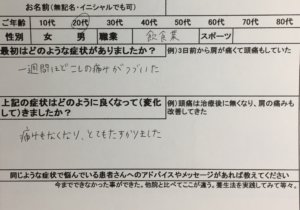 お名前(無記名・イニシャルでも可)
ご年齢 10代 20代 30代 40代 50代 60代 70代 80代
性別 女 男 職業 飲食業 スポーツ
最初はどのような症状がありましたか? 例)3日前から肩が痛くて頭痛もしていた
一週間ほどこしの痛みがつづいた
上記の症状はどのように良くなって(変化して)きましたか? 例)頭痛は治療後に無くなり、肩の痛みも改善してきた
痛みもなくなり、とてもたすかりました
同じような症状で悩んでいる患者さんへのアドバイスやメッセージがあれば教えてください
今までできなかった事ができた。他院と比べてここが違う。養生法を実践してみて等々。